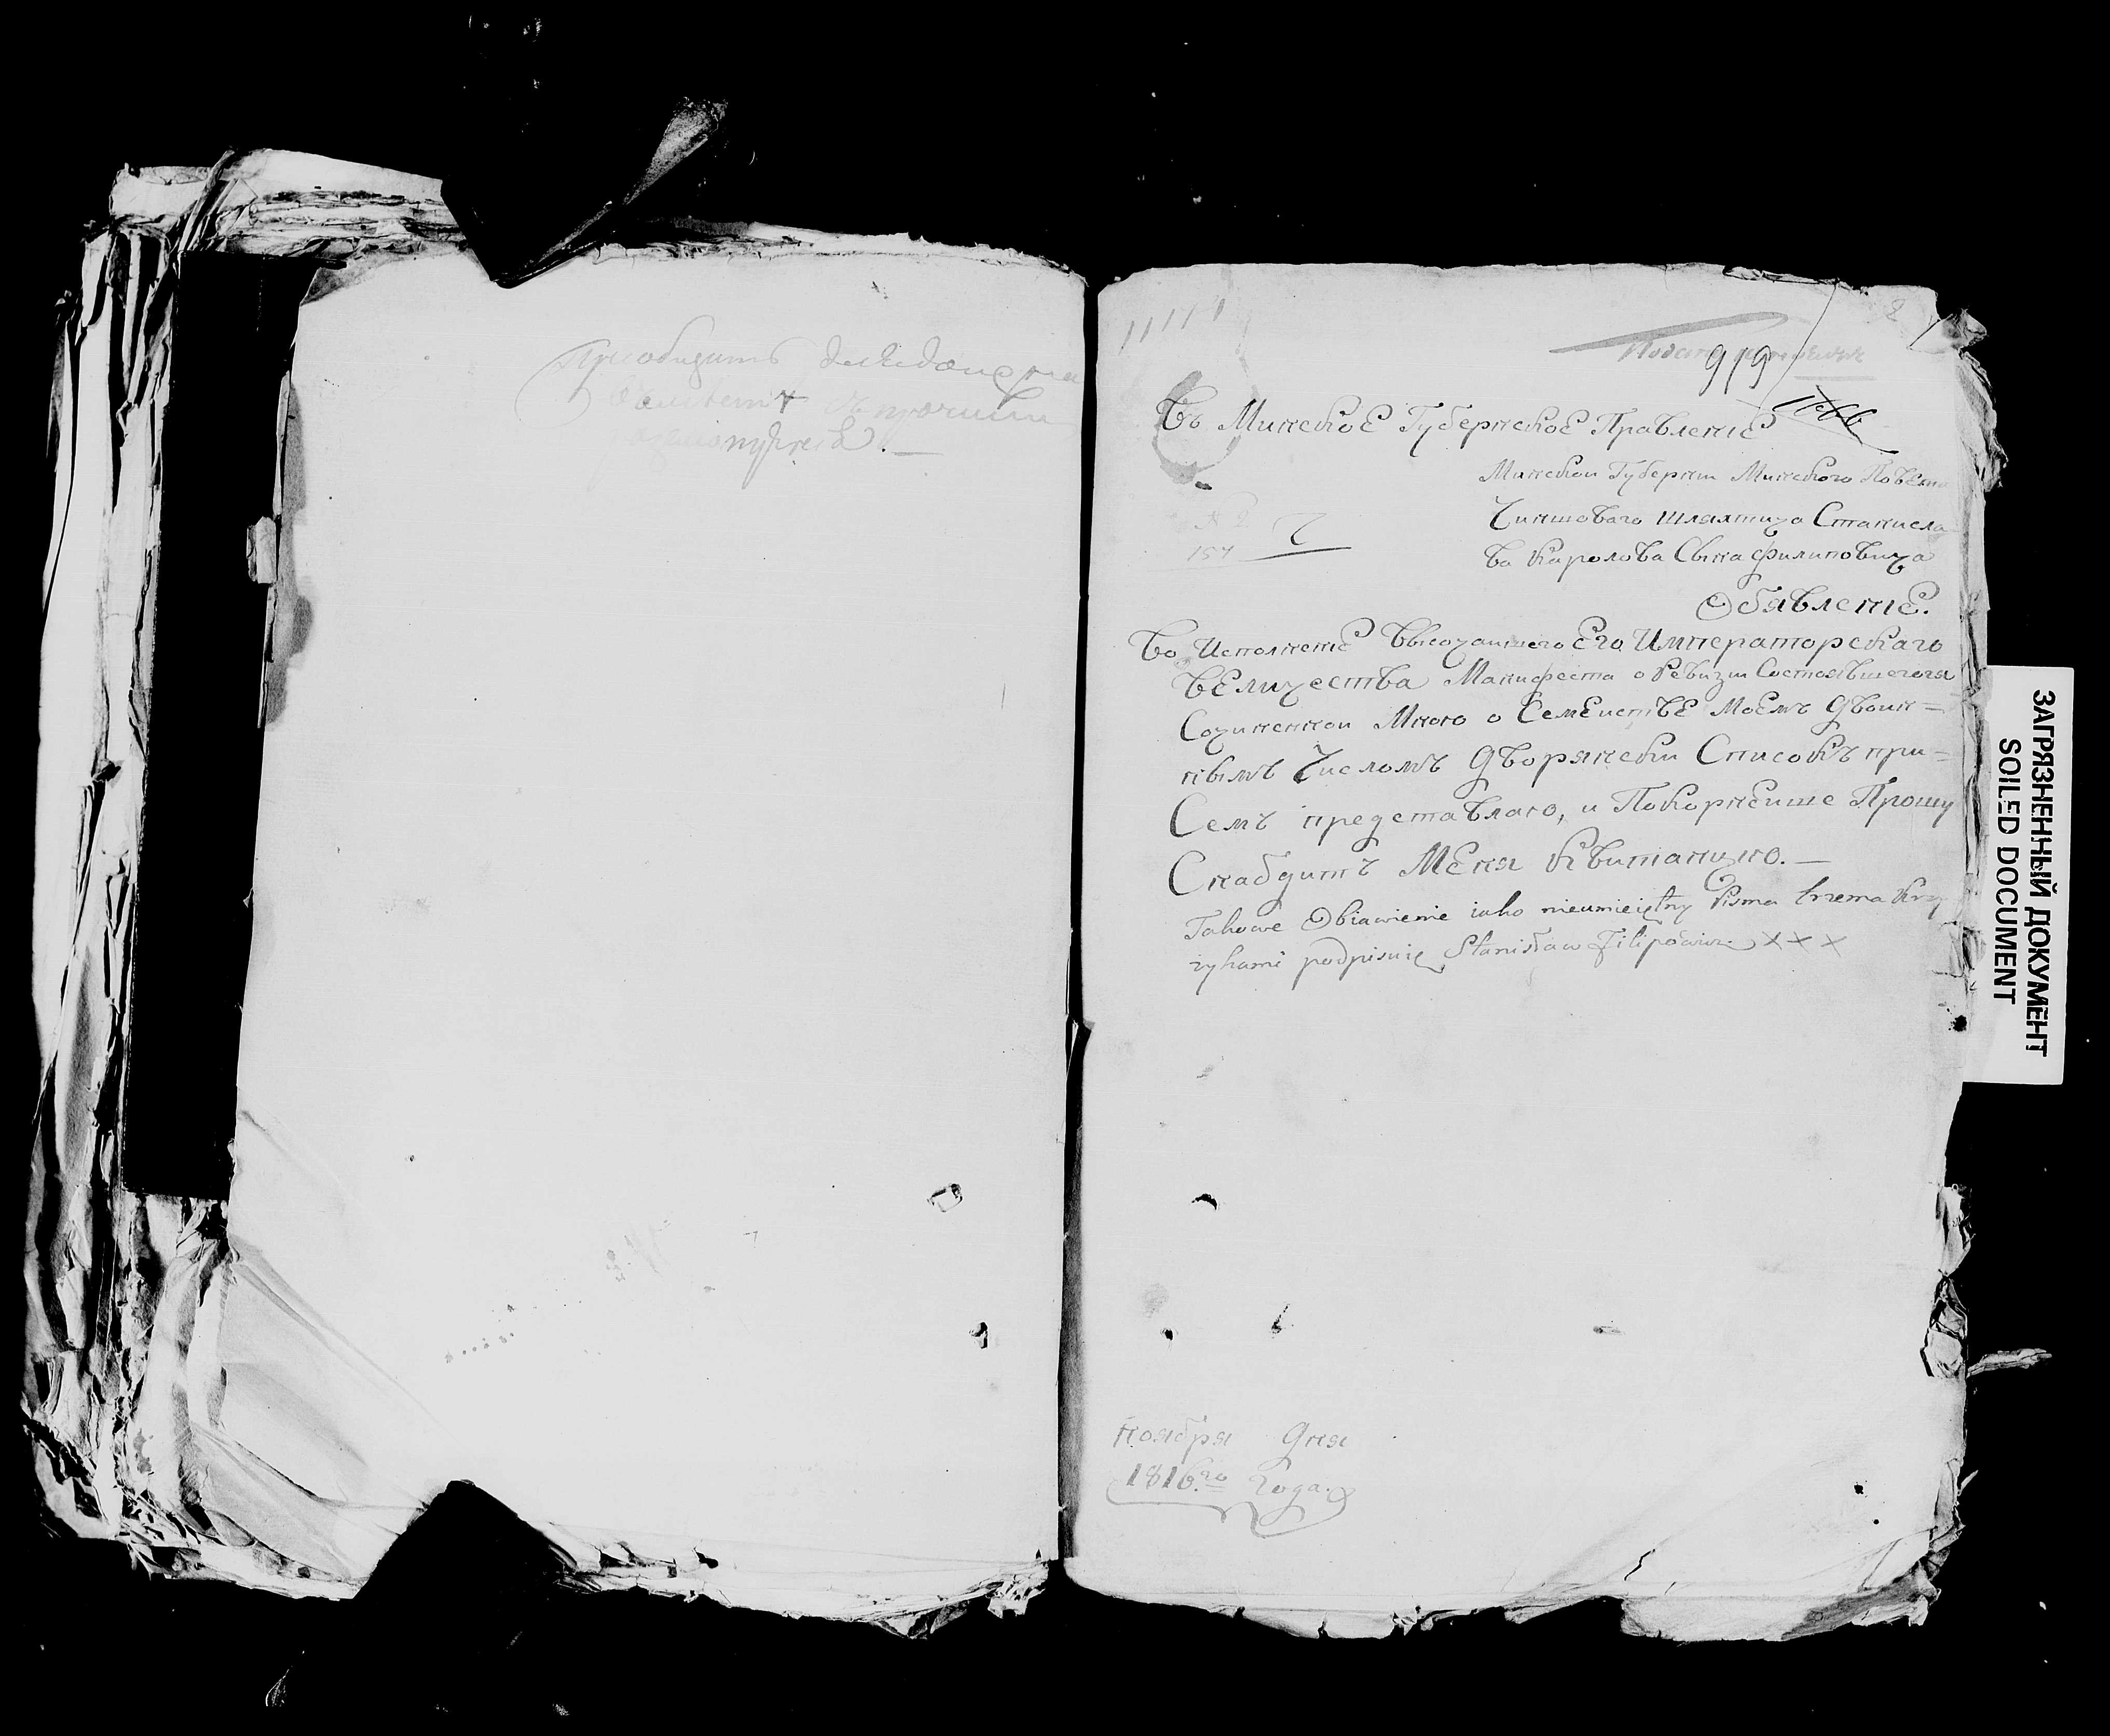 Приобщить
съ прочими
2
919
1066
Въ Минское Губернское Правленіе
Минской Губерніи Минского Повета
Чиншоваго Шляхтича Станисла
ва Каролова Сына Филиповича
157
Обявленіе.
Во Исполненіе Высочаишего Его Императорскаго
Величества Манифеста о Ревизіи Состоявшегося
Сочиненнои Мною о Семеистве Моемъ Двоин=
нымъ Числомъ Дворянски Списокъ при=
Семъ представляю, и Покорнеише Прошу
Снабдить Меня Квитанцію.—
Takowe Obiawienie iako nieumieiętny Pisma trzema Krzy
zykami podpisuię Stanisław Filipowicz X X X
Ноября Дня
1816.го Года.
ЗАГРЯЗНЕННЫЙ ДОКУМЕНТ
SOILED DOCUMENT